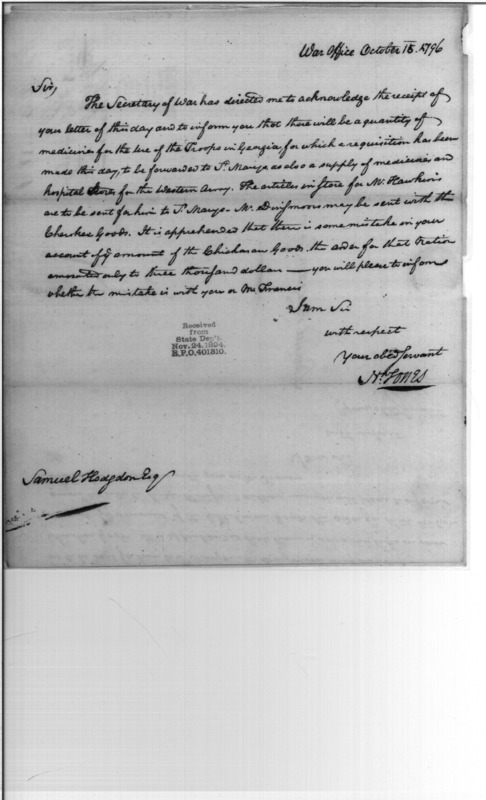 War Office October 15. 1796
Sir,
The Secretary of War has directed me to acknowledge the receipt of
your letter of this day and to inform you that there will be a quantity of
medicines for the use of the Troops in Georgia for which a requisition has been
made this day, to be forwarded to St. Marys as also a supply of medicines and
hospital Stores for the Western Army. The articles in Store for Mr. Hawkins
are to be sent for him to St. Marys. Mr. Dinsmoors may be sent with the
Cherokee Goods. It is apprehended that there is some mistake in your
account of ye amount of the Chickasaw Goods the order for that Nation
amounted only to three thousand dollars — you will please to inform
whether the mistake is with you or Mr. Francis
I am Sir
with respect
Your obed Servant
Received
from
State Dep't.
Nov. 24, 1894.
R.P.O. 401810.
Jones
Samuel Hodgdon Esq